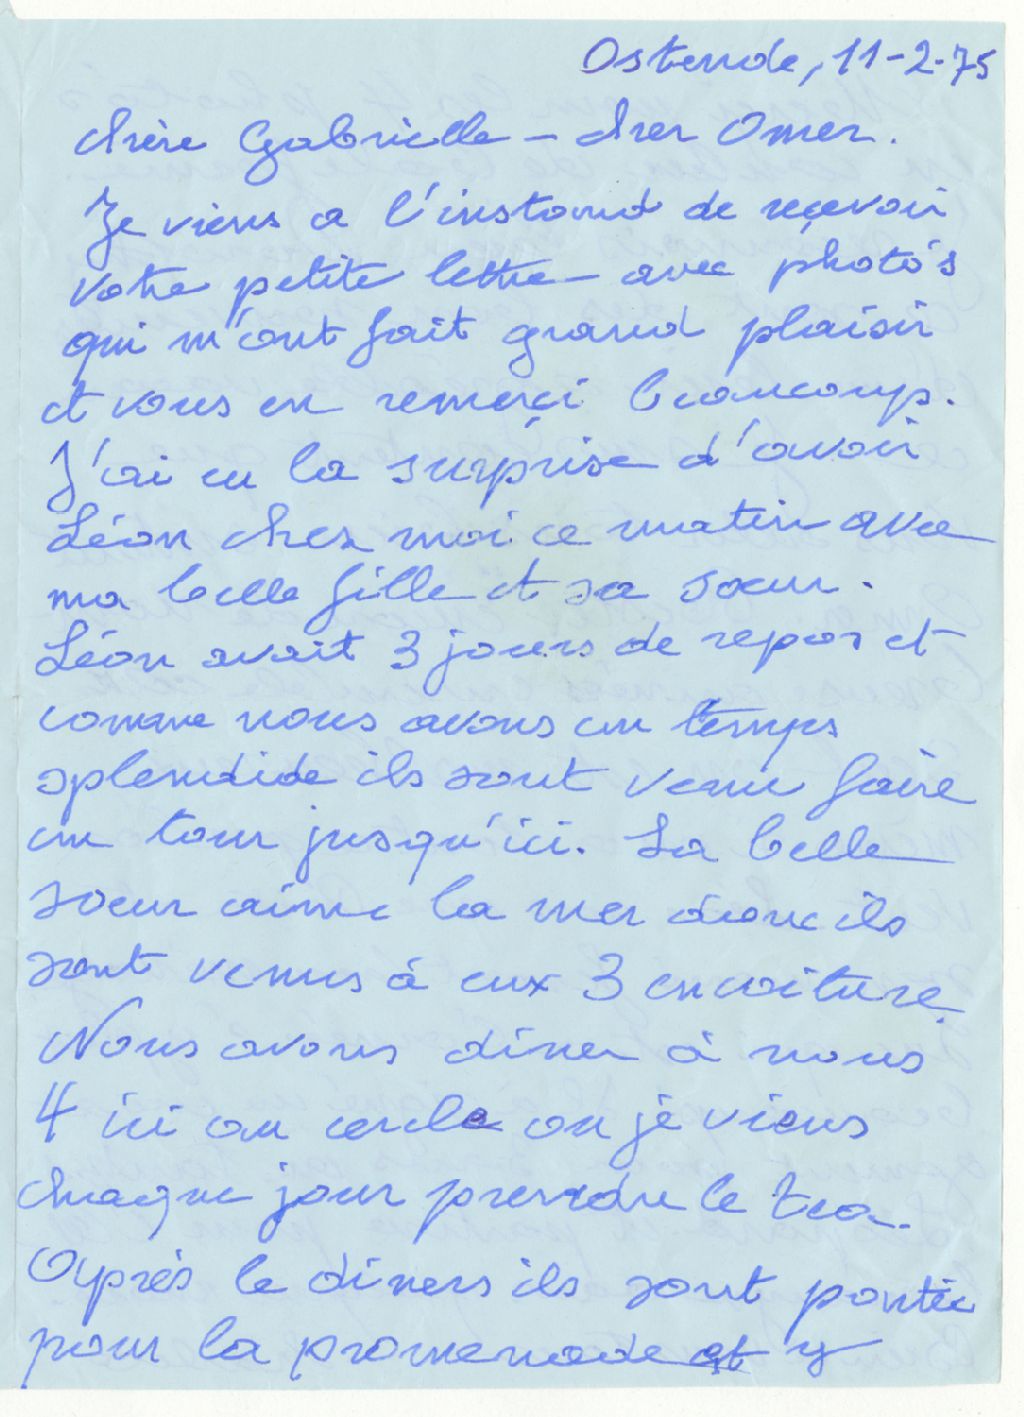 Ostende, 11-2-75
Chère Gabrielle - Cher Omer.
Je viens a l'instand de reçevoir
votre petite lettre - avec photo's
qui m'ont fait grand plaisir
et vous en remerçi beaucoup.
J'ai eu la surprise d'avoir
Léon chez moi ce matin avec
ma belle fille et sa soeur.
Léon avait 3 jours de repos et
comme nous avons un temps
splendide ils sont venu faire
un tour jusqu'ici. La belle
soeur aime la mer donc ils
sont venus à eux 3 en voiture.
Nous avons diner à nous
4 ici au cercle ou je viens
chaque jour prendre le tea.
Après le diners ils sont partie
pour la promenade et y